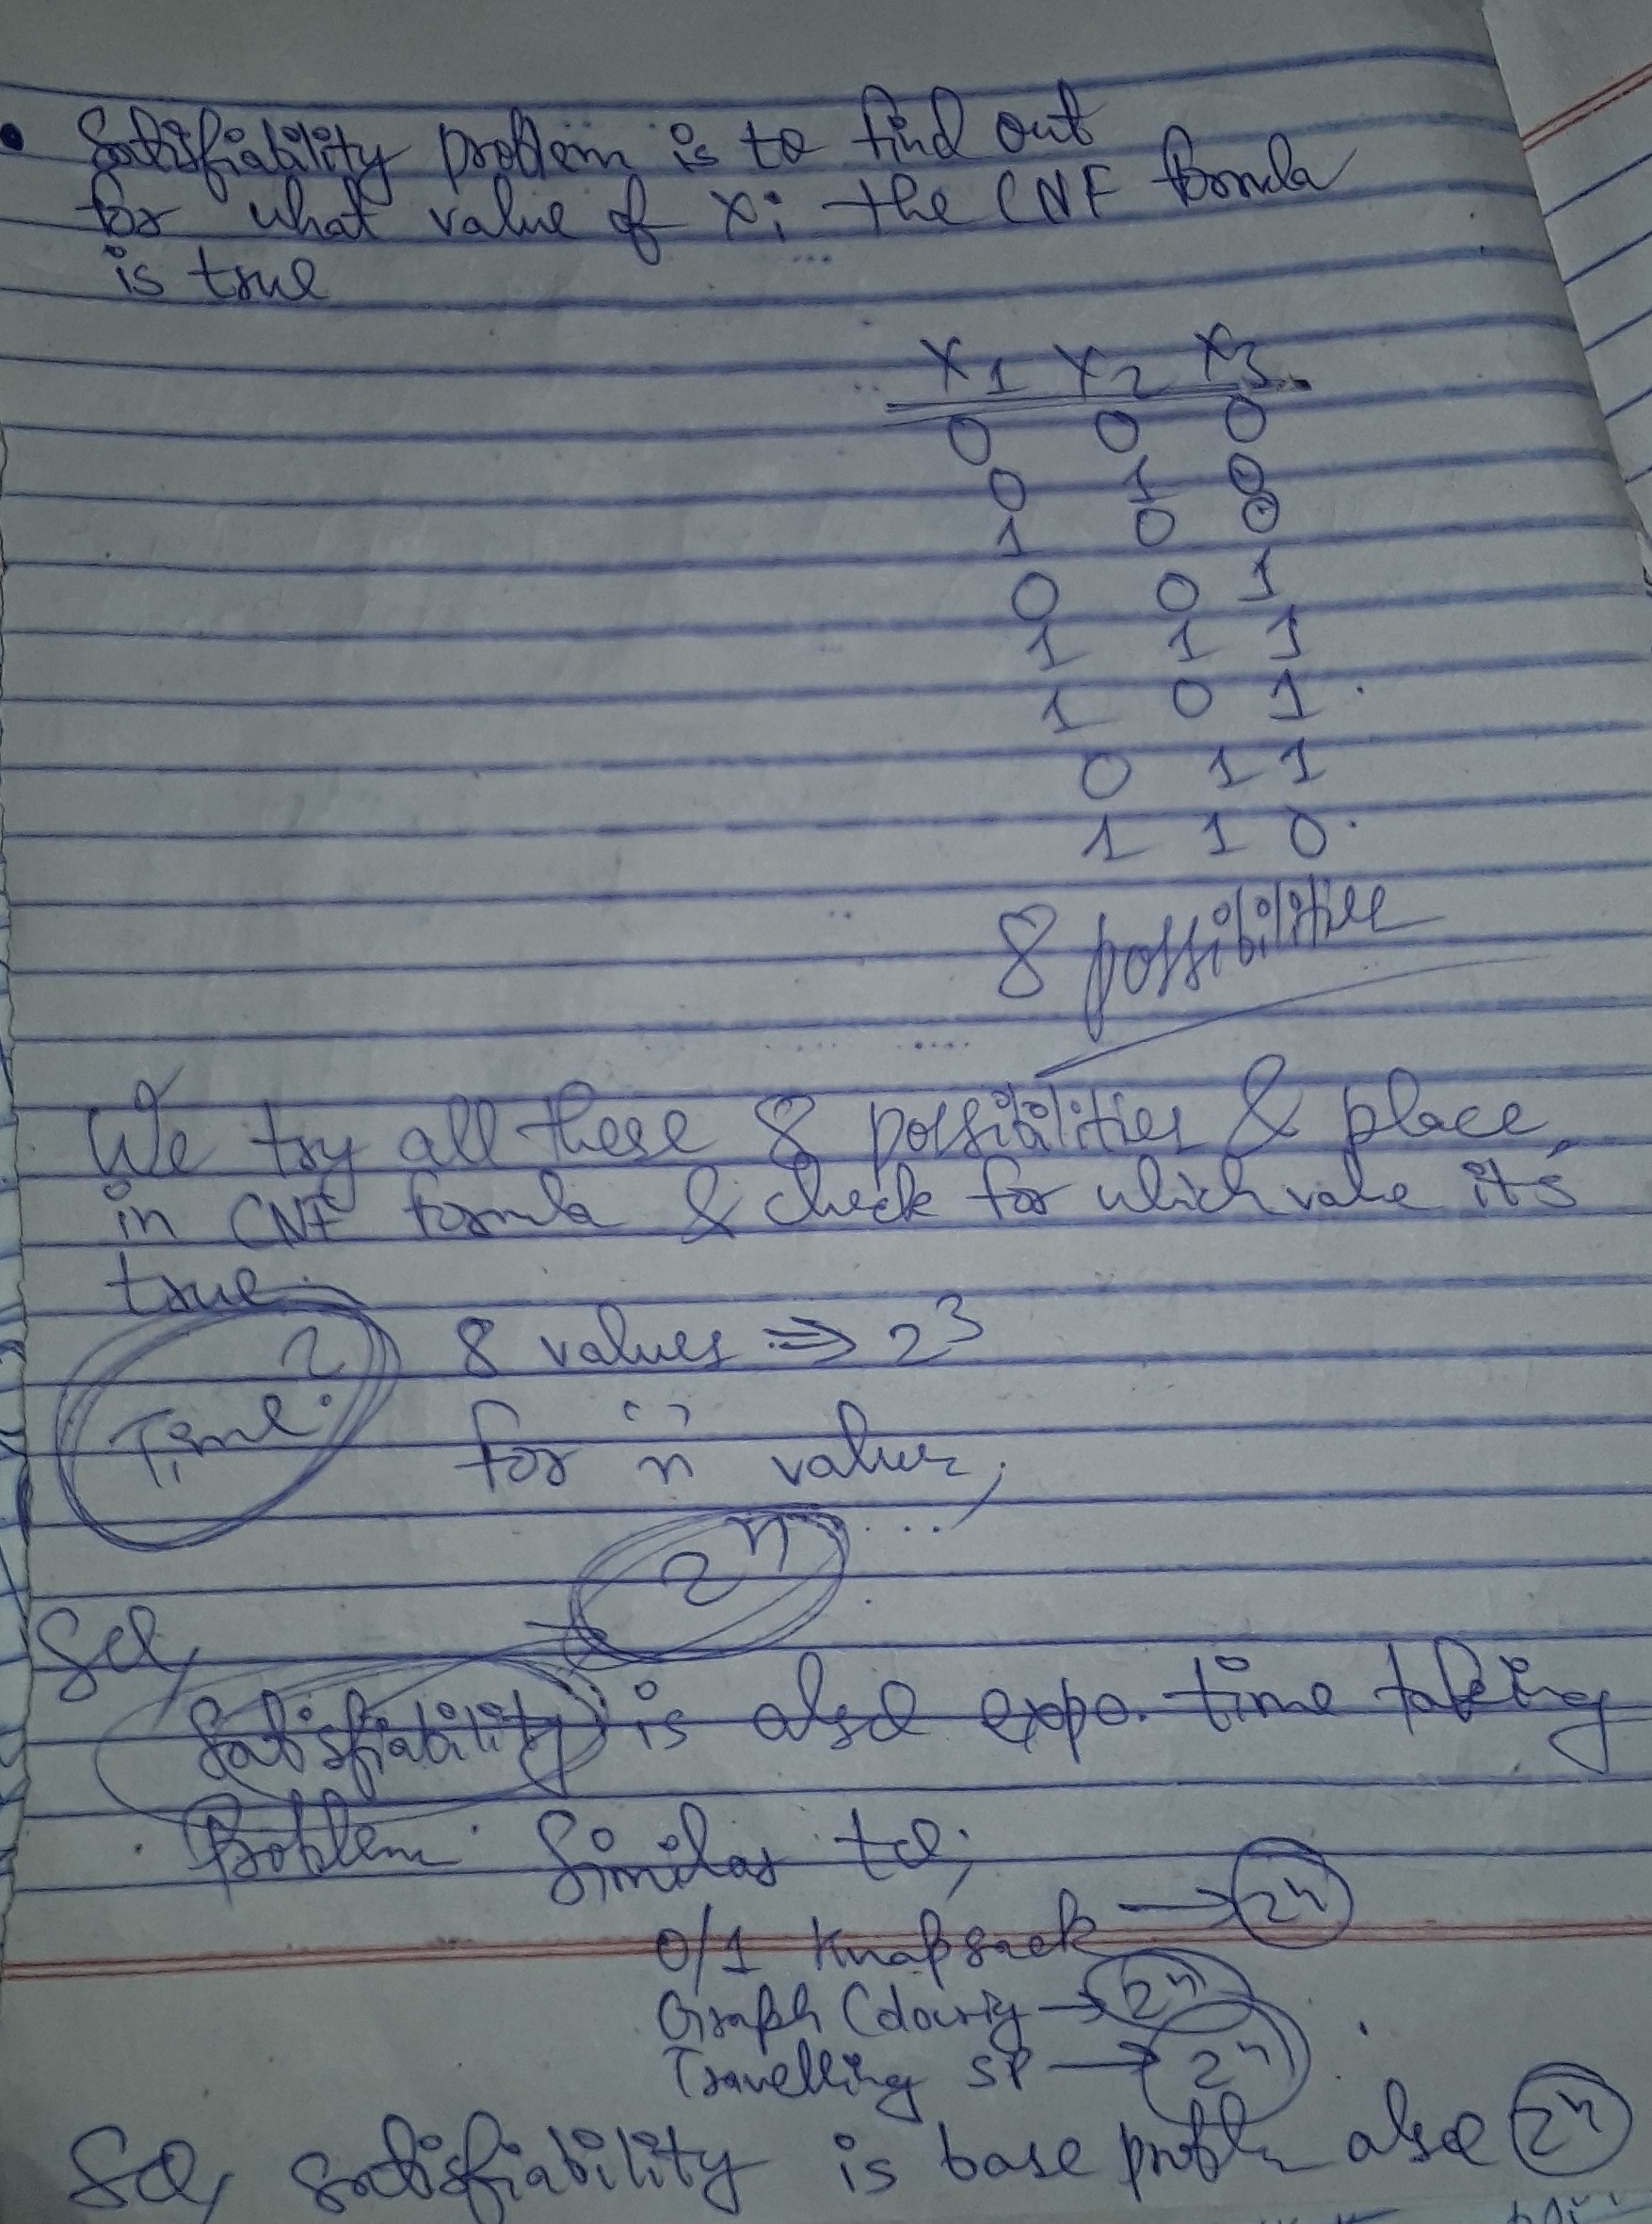 • Satisfiability problem is to find out
for what value of xi the CNF formula
is true
x1 x2 x3
0 0 0
0 1 0
1 0 0
0 0 1
1 1 1
1 0 1
0 1 1
1 1 0
8 possibilities
We try all these 8 possibilities & place
in CNF formula & check for which value it's
true
Time? 8 values ⇒ 2^3
for 'n' values,
2^n
So,
Satisfiability is also expo. time taking
Problem Similar to,
0/1 Knapsack → 2^n
Graph Colouring → 2^n
Travelling SP → 2^n
So, satisfiability is base problem also 2^n